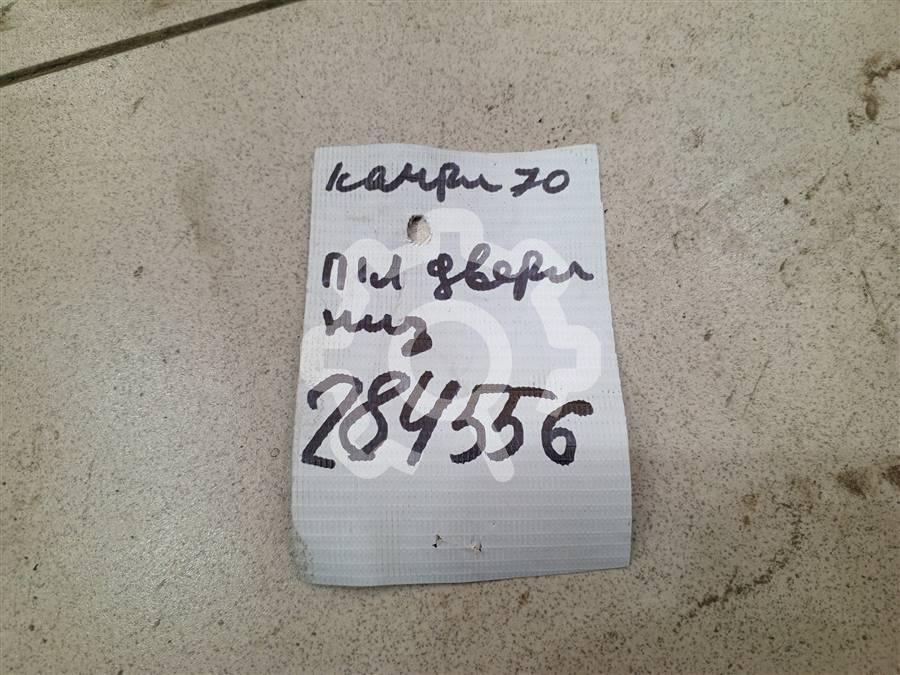 камри 70
П\Л двери
низ
284556